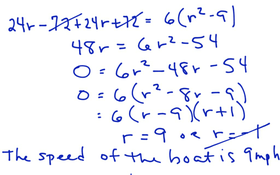 24r - 72 + 24r + 72 = 6(r² - 9)
48r = 6r² - 54
0 = 6r² - 48r - 54
0 = 6(r² - 8r - 9)
= 6(r - 9)(r + 1)
r = 9 or r = -1
The speed of the boat is 9mph